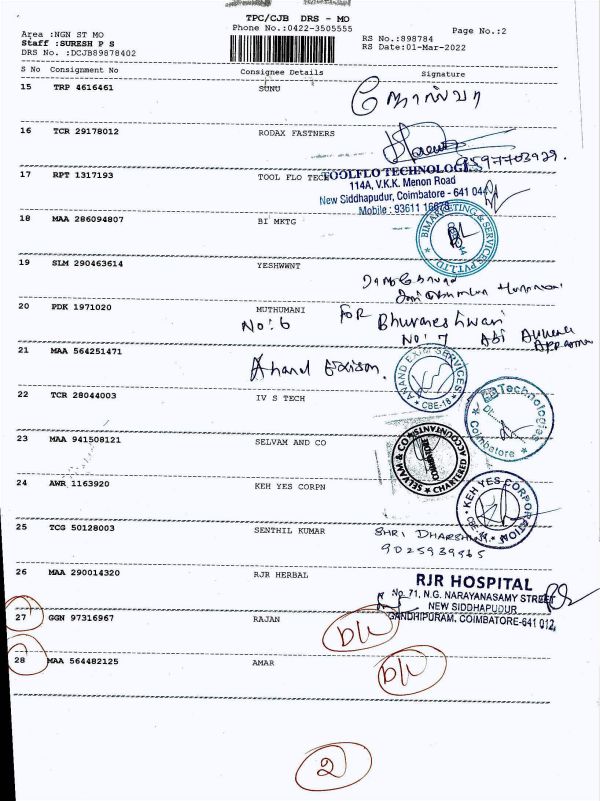 TPC/CJB DRS - MO
Phone No.:0422-3505555
Page No.:2
Area :NGN ST MO
Staff :SURESH P S
DRS No. :DCJB89878402
RS No.:898784
RS Date:01-Mar-2022
S No Consignment No Consignee Details Signature
15 TRP 4616461 SUNU
16 TCR 29178012 RODAX FASTNERS
9597703929.
17 RPT 1317193 TOOL FLO TECH
TOOLFLO TECHNOLOGI
114A, V.K.K. Menon Road
New Siddhapudur, Coimbatore - 641 044
Mobile : 93611 16678
18 MAA 286094807 BI MKTG
BIMARKETING & SERVICES PVT.LTD
19 SLM 290463614 YESHWWNT
20 PDK 1971020 MUTHUMANI
No: 6 FOR Bhuvaneshwari
No: 7
21 MAA 564251471
Anand
ANAND EXIM SERVICES
* CBE-18 *
22 TCR 28044003 IV S TECH
Technologies
* Coimbatore *
23 MAA 941508121 SELVAM AND CO
SELVAM & CO
* CHARTERED ACCOUNTANTS *
COIMBATORE
24 AWR 1163920 KEH YES CORPN
KEH YES CORPORATION
25 TCG 50128003 SENTHIL KUMAR
SHRI DHARSHI
9025939565
26 MAA 290014320 RJR HERBAL
RJR HOSPITAL
No. 71, N.G. NARAYANASAMY STREET
NEW SIDDHAPUDUR
GANDHIPURAM, COIMBATORE-641 012
27 GGN 97316967 RAJAN
D/L
28 MAA 564482125 AMAR
D/L
2